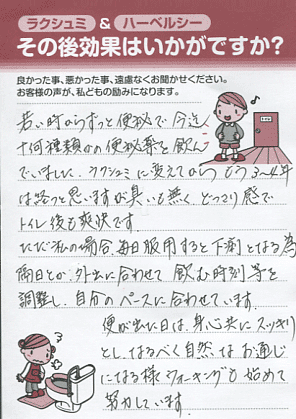 ラクシュミ & ハーベルシー
その後効果はいかがですか?
良かった事、悪かった事、遠慮なくお聞かせください。
お客様の声が、私どもの励みになります。
若い時からずっと便秘で今迄
十何種類かの便秘薬を飲ん
でいました。ラクシュミに変えてから もう3〜4年
は経つと思いますが臭いも無く、どっさり感で
トイレ後も爽快です。
ただ私の場合、毎日服用すると下痢となる為
隔日とか、外出に合わせて 飲む時刻等を
調整し、自分のペースに合わせています。
便が出た日は、身心共にスッキリ
とし、なるべく自然なお通じ
になる様ウォーキングも始めて
努力しています。